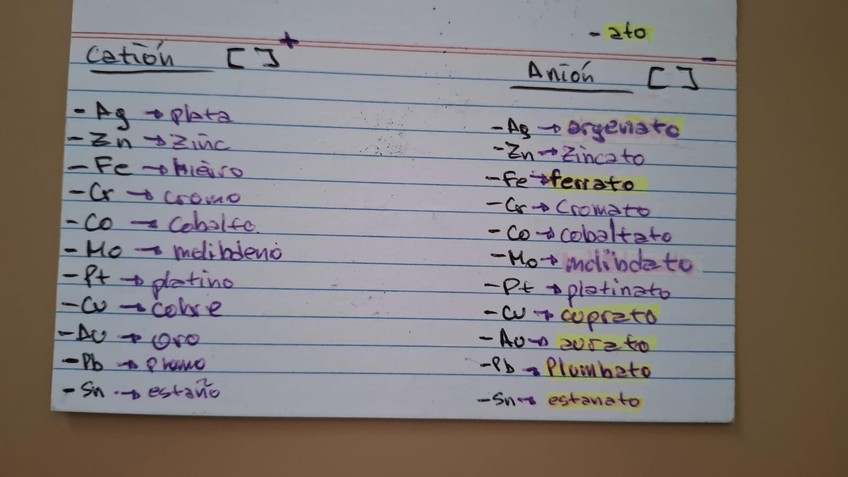 - ato
Catión [ ]+
- Ag → plata
- Zn → Zinc
- Fe → hierro
- Cr → cromo
- Co → cobalto
- Mo → molibdeno
- Pt → platino
- Cu → cobre
- Au → oro
- Pb → plomo
- Sn → estaño
Anión [ ]-
- Ag → argenato
- Zn → Zincato
- Fe → ferrato
- Cr → cromato
- Co → cobaltato
- Mo → molibdato
- Pt → platinato
- Cu → cuprato
- Au → aurato
- Pb → Plumbato
- Sn → estanato